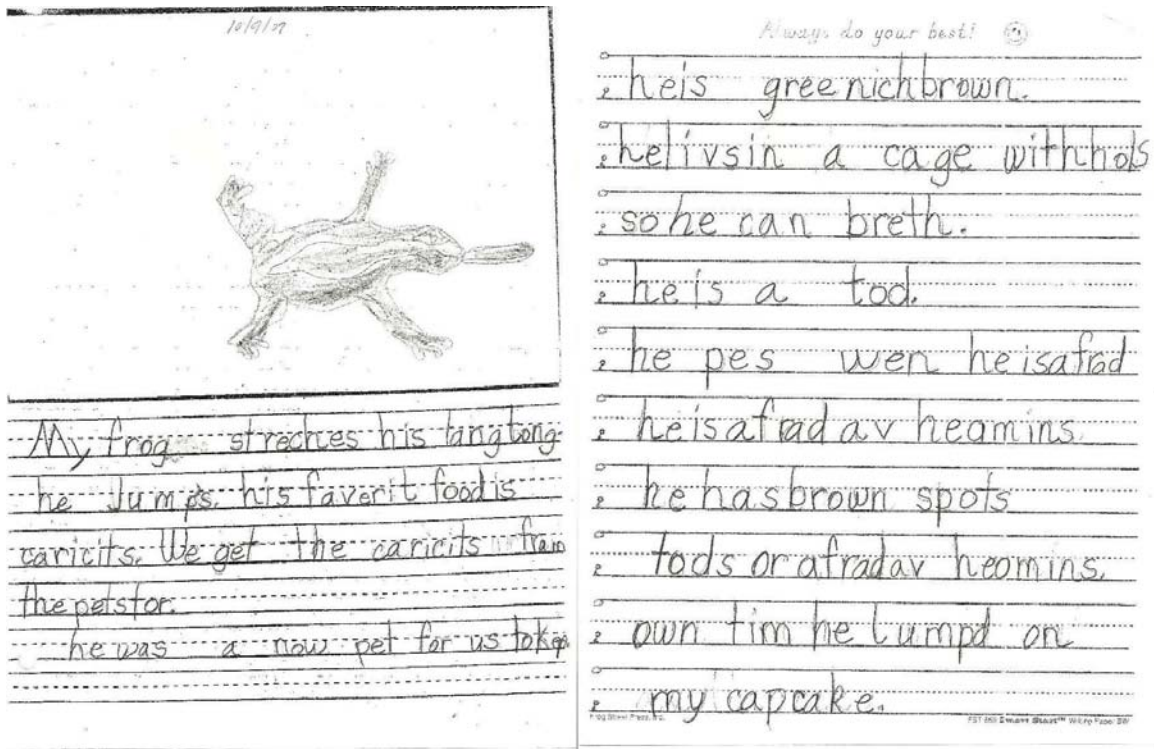 My frog streches his tangtong
he Jumps. his faverit food is
caricits. We get the caricits fram
the petsfor.
he was a now pet for us to
Always do your best!
heis greenichbrown.
helivsin a cage withhols
sohe can breth.
heis a tod.
he pes wen he isafrad
heisafrad av heamins
he hasbrown spots
tods or afradav heomins.
own tim he Lumpd on
my capcake.
Frog Street Press, Inc.
Smart Start™ Writing Paper